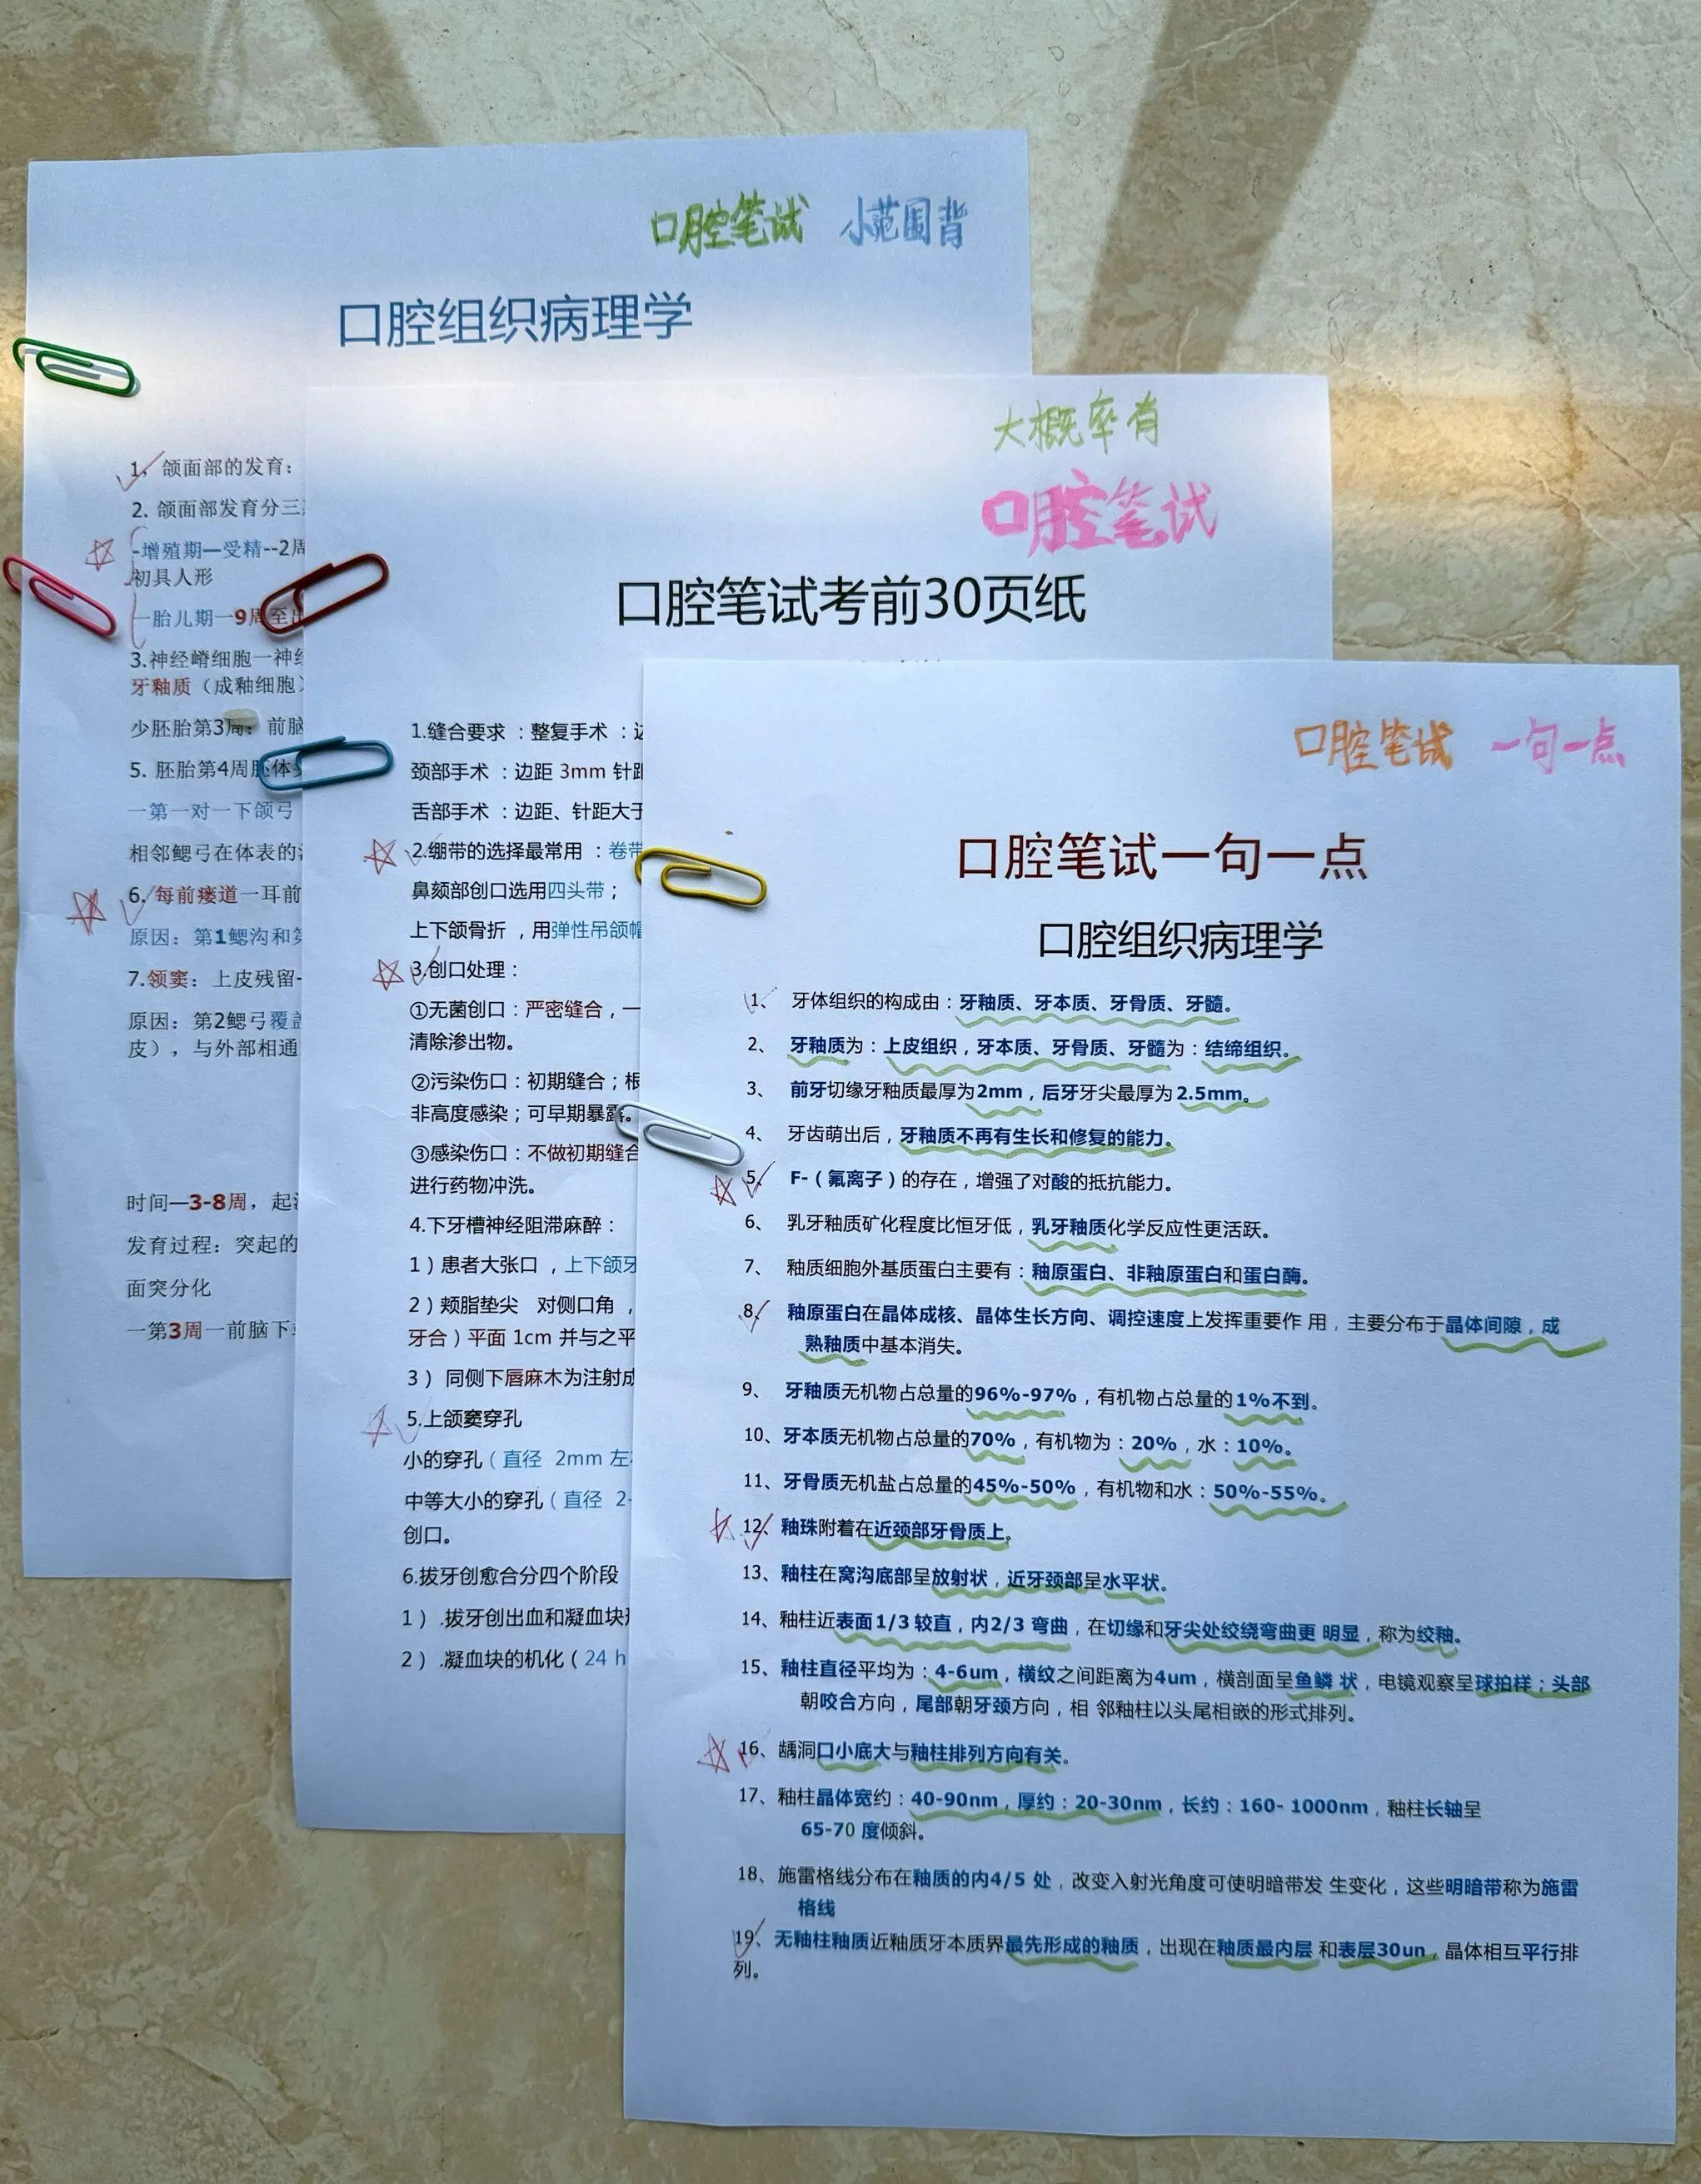 口腔笔试 小范围背
口腔组织病理学
1，颌面部的发育：
2. 颌面部发育分三
-增殖期—受精--2周
初具人形
一胎儿期一9周至出
3.神经嵴细胞一神经
牙釉质（成釉细胞）
少胚胎第3周：前脑
5. 胚胎第4周胚体
一第一对一下颌弓
相邻鳃弓在体表的
6. 每前瘘道一耳前
原因：第1鳃沟和第
7.领窦：上皮残留-
原因：第2鳃弓覆盖
皮），与外部相通
时间—3-8周，起
发育过程：突起的
面突分化
一第3周一前脑下
大概率有
口腔笔试
口腔笔试考前30页纸
1.缝合要求 ：整复手术 ：边
颈部手术 ：边距 3mm 针距
舌部手术 ：边距、针距大于
2.绷带的选择最常用 ：卷带
鼻颏部创口选用四头带；
上下颌骨折 ，用弹性吊颌帽
3.创口处理：
①无菌创口：严密缝合，一
清除渗出物。
②污染伤口：初期缝合；根
非高度感染；可早期暴露。
③感染伤口：不做初期缝合
进行药物冲洗。
4.下牙槽神经阻滞麻醉：
1）患者大张口 ，上下颌牙
2）颊脂垫尖 对侧口角 ，
牙合）平面 1cm 并与之平
3） 同侧下唇麻木为注射成
5.上颌窦穿孔
小的穿孔（直径 2mm 左
中等大小的穿孔（直径 2-
创口。
6.拔牙创愈合分四个阶段
1）.拔牙创出血和凝血块
2）.凝血块的机化（24 h
口腔笔试 一句一点
口腔笔试一句一点
口腔组织病理学
1、 牙体组织的构成由：牙釉质、牙本质、牙骨质、牙髓。
2、 牙釉质为：上皮组织，牙本质、牙骨质、牙髓为：结缔组织。
3、 前牙切缘牙釉质最厚为2mm，后牙牙尖最厚为2.5mm。
4、 牙齿萌出后，牙釉质不再有生长和修复的能力。
5、 F-（氟离子）的存在，增强了对酸的抵抗能力。
6、 乳牙釉质矿化程度比恒牙低，乳牙釉质化学反应性更活跃。
7、 釉质细胞外基质蛋白主要有：釉原蛋白、非釉原蛋白和蛋白酶。
8、 釉原蛋白在晶体成核、晶体生长方向、调控速度上发挥重要作 用，主要分布于晶体间隙，成
熟釉质中基本消失。
9、 牙釉质无机物占总量的96%-97%，有机物占总量的1%不到。
10、牙本质无机物占总量的70%，有机物为：20%，水：10%。
11、牙骨质无机盐占总量的45%-50%，有机物和水：50%-55%。
12、釉珠附着在近颈部牙骨质上。
13、釉柱在窝沟底部呈放射状，近牙颈部呈水平状。
14、釉柱近表面1/3 较直，内2/3 弯曲，在切缘和牙尖处绞绕弯曲更 明显，称为绞釉。
15、釉柱直径平均为：4-6um，横纹之间距离为4um，横剖面呈鱼鳞 状，电镜观察呈球拍样；头部
朝咬合方向，尾部朝牙颈方向，相 邻釉柱以头尾相嵌的形式排列。
16、龋洞口小底大与釉柱排列方向有关。
17、釉柱晶体宽约：40-90nm，厚约：20-30nm，长约：160- 1000nm，釉柱长轴呈
65-70 度倾斜。
18、施雷格线分布在釉质的内4/5 处，改变入射光角度可使明暗带发 生变化，这些明暗带称为施雷
格线
19、无釉柱釉质近釉质牙本质界最先形成的釉质，出现在釉质最内层 和表层30un，晶体相互平行排
列。